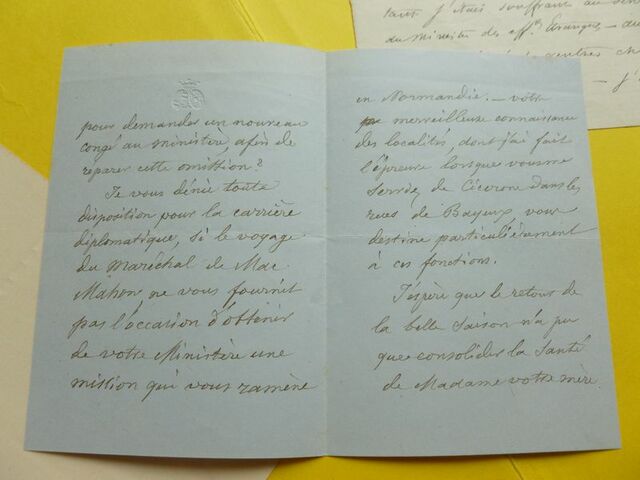 pour demander un nouveau
congé au ministère, afin de
réparer cette omission?
Je vous dénie toute
disposition pour la carrière
diplomatique, si le voyage
du Maréchal de Mac
Mahon ne vous fournit
pas l'occasion d'obtenir
de votre Ministère une
mission qui vous ramène
en Normandie. — votre
merveilleuse connaissance
des localités, dont j'ai fait
l'épreuve lorsque vous me
servîez de Cicerone dans les
rues de Bayeux, vous
destine particulièrement
à ces fonctions.
J'espère que le retour de
la belle saison n'a pu
que consolider la santé
de Madame votre mère.
tant j'étais souffrant
du Ministre des aff.es Etrangès — au
— j'